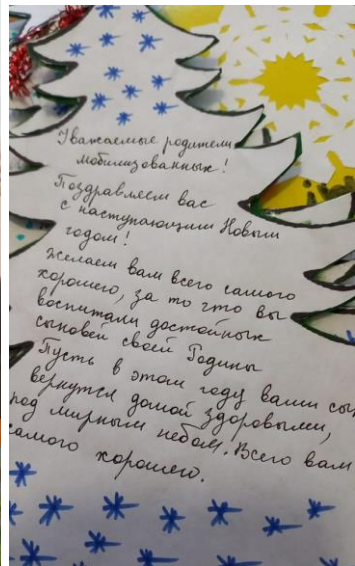 Уважаемые родители
мобилизованных!
Поздравляем вас
с наступающим Новым
годом!
Желаем вам всего самого
хорошего, за то что вы
воспитали достойных
сыновей своей Родины
Пусть в этом году ваши сын
вернутся домой здоровыми,
под мирным небом. Всего вам
самого хорошего.